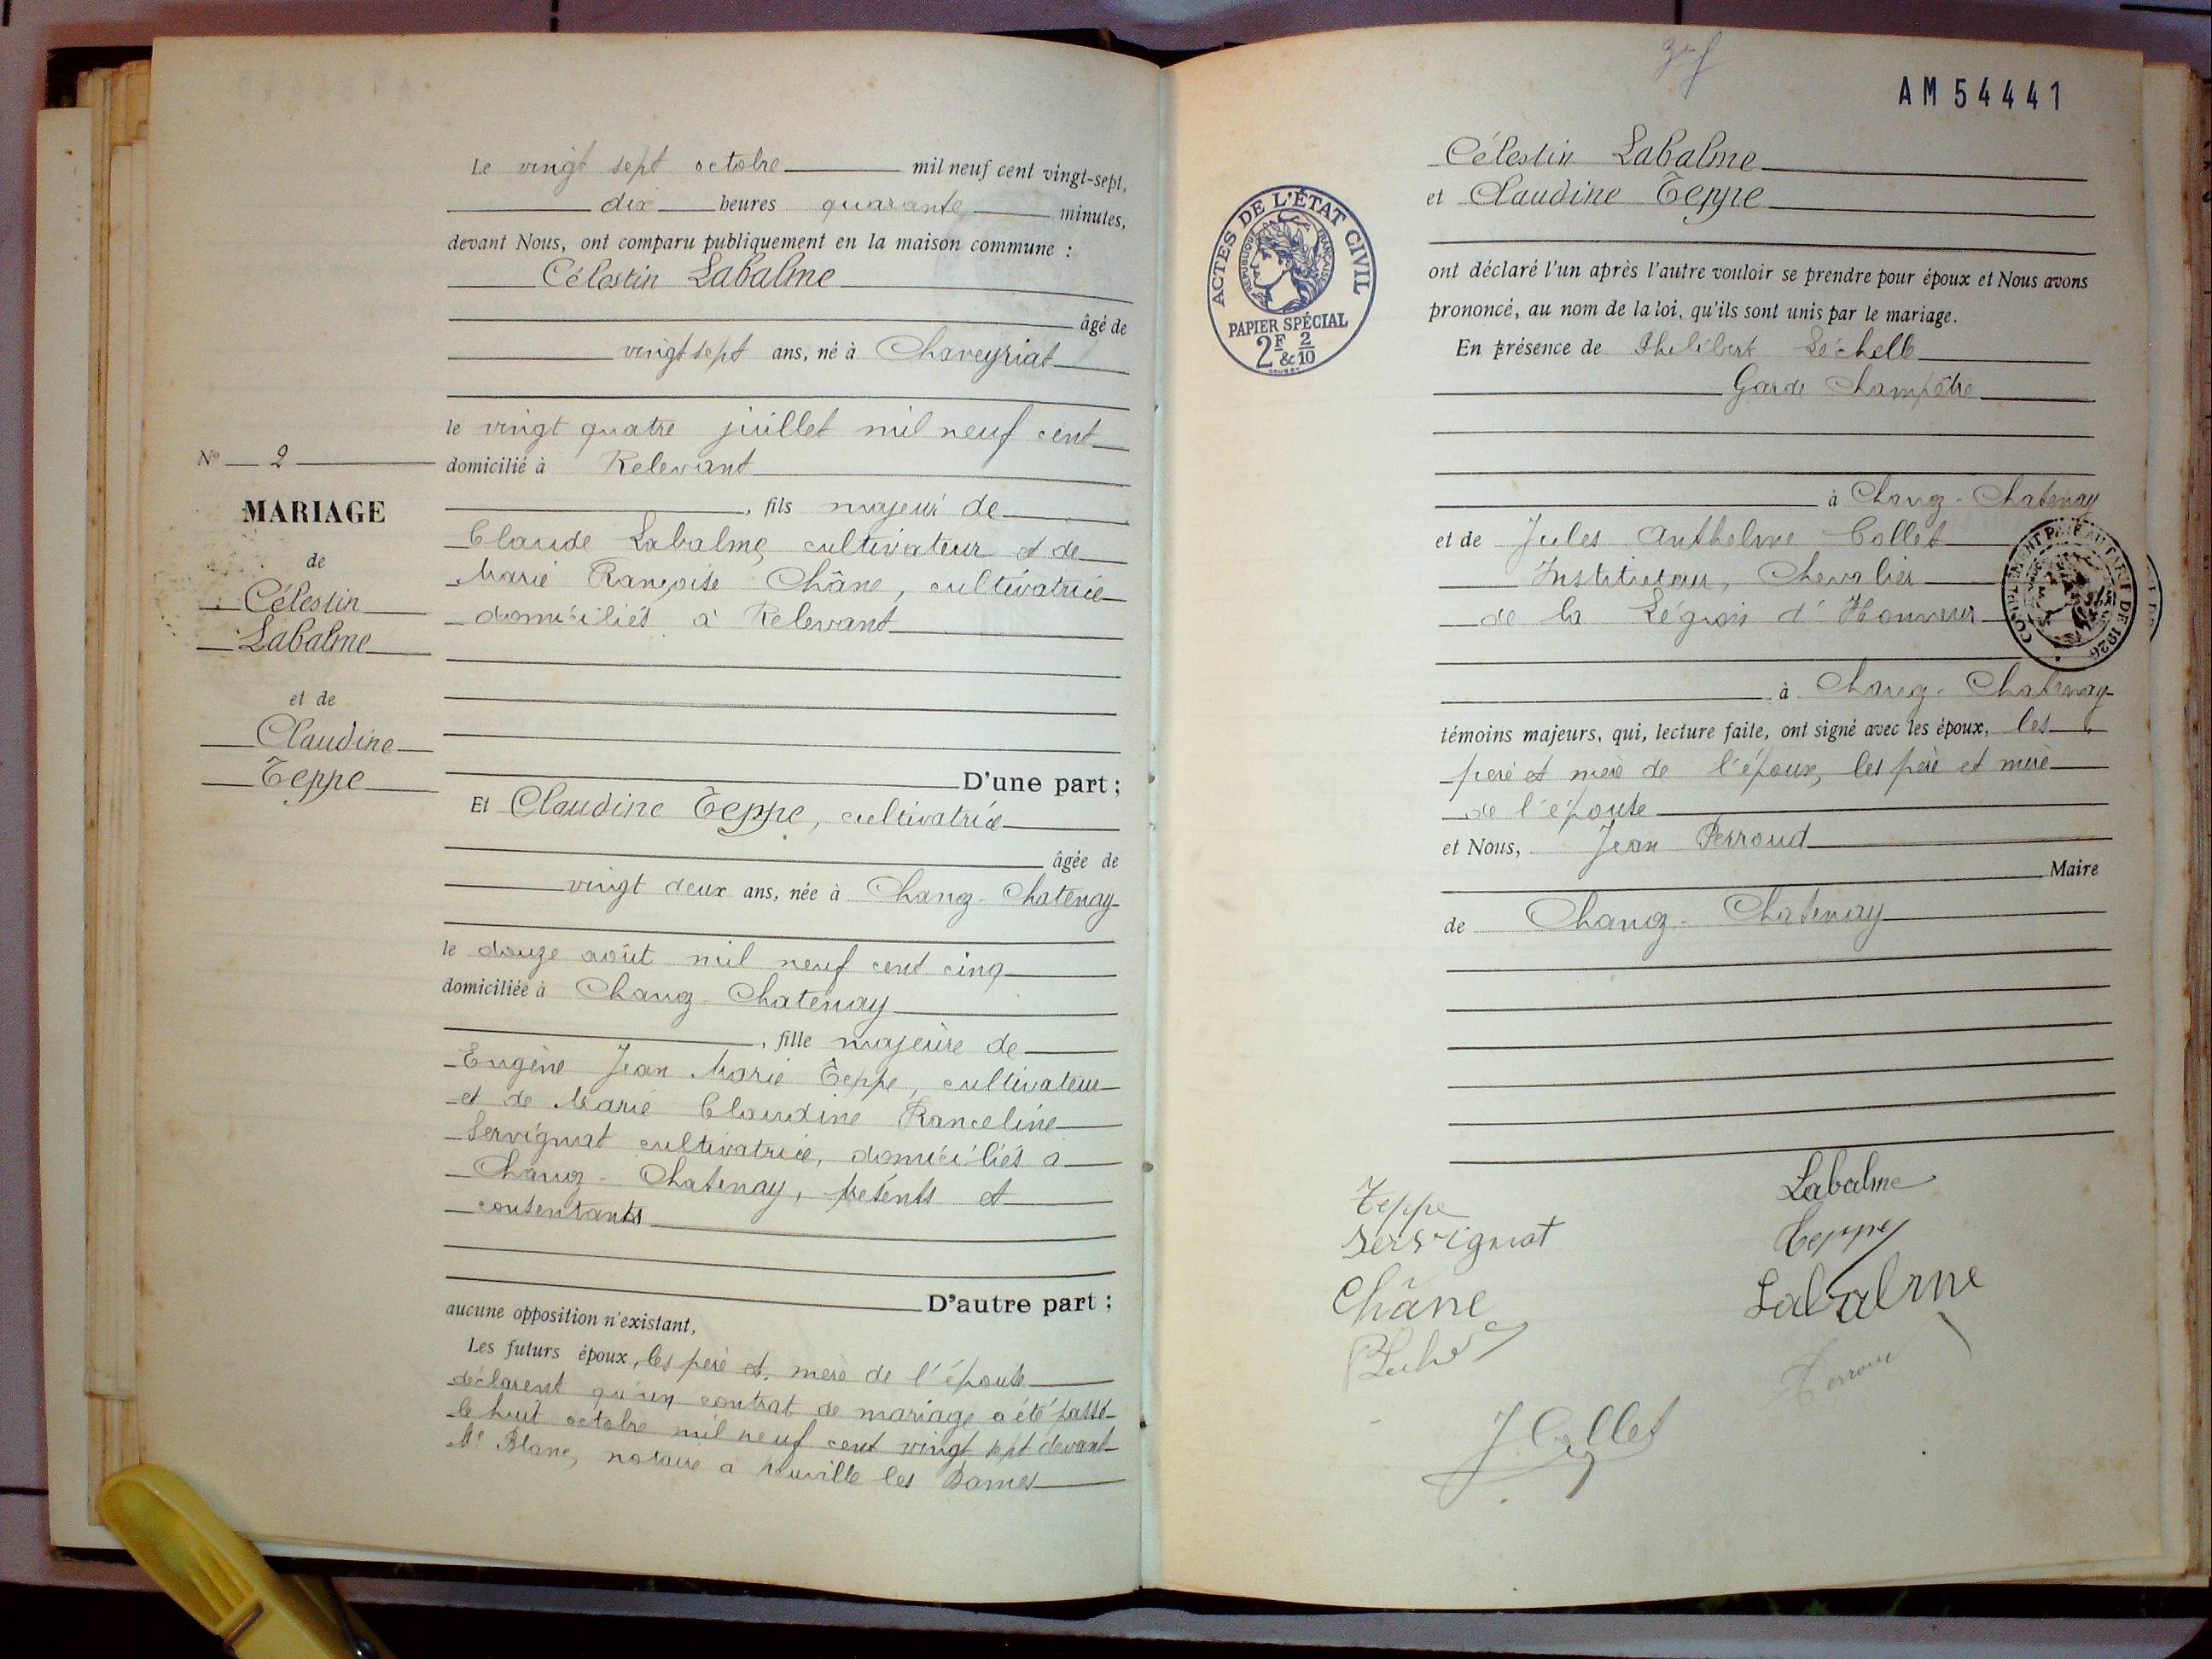 Le vingt sept octobre mil neuf cent vingt-sept,
dix heures quarante minutes,
devant Nous, ont comparu publiquement en la maison commune :
Célestin Labalme
âgé de
vingt sept ans, né à Chaveyriat
le vingt quatre juillet mil neuf cent
domicilié à Relevant
, fils majeur de
Claude Labalme, cultivateur et de
Marie Françoise Châne, cultivatrice
domiciliés à Relevant
D'une part ;
Et Claudine Teppe, cultivatrice
âgée de
vingt deux ans, née à Chanoz-Chatenay
le douze août mil neuf cent cinq
domiciliée à Chanoz-Chatenay
, fille majeure de
Eugène Jean Marie Teppe, cultivateur
et de Marie Claudine Franceline
Servignat cultivatrice, domiciliés à
Chanoz-Chatenay, présents et
consentants
D'autre part ;
aucune opposition n'existant,
Les futurs époux, les père et mère de l'épouse
déclarent qu'un contrat de mariage a été passé
le huit octobre mil neuf cent vingt sept devant
Me Blanc, notaire à Neuville les Dames
No 2
MARIAGE
de
Célestin
Labalme
et de
Claudine
Teppe
AM 54441
ACTES DE L'ÉTAT CIVIL
RÉPUBLIQUE FRANÇAISE
PAPIER SPÉCIAL
2F & 2/10
Célestin Labalme
et Claudine Teppe
ont déclaré l'un après l'autre vouloir se prendre pour époux et Nous avons
prononcé, au nom de la loi, qu'ils sont unis par le mariage.
En présence de Philibert Léchelle
Garde Champêtre
à Chanoz-Chatenay
et de Jules Anthelme Collet
Instituteur, Chevalier
de la Légion d'Honneur
COMPLÉMENT PAYÉ AU TARIF DE 1926
à Chanoz-Chatenay
témoins majeurs, qui, lecture faite, ont signé avec les époux, les
père et mère de l'époux, les père et mère
de l'épouse
et Nous, Jean Perroud
Maire
de Chanoz-Chatenay
Teppe
Servignat
Châne
Labalme
Teppe
Labalme
Perroud
J Collet